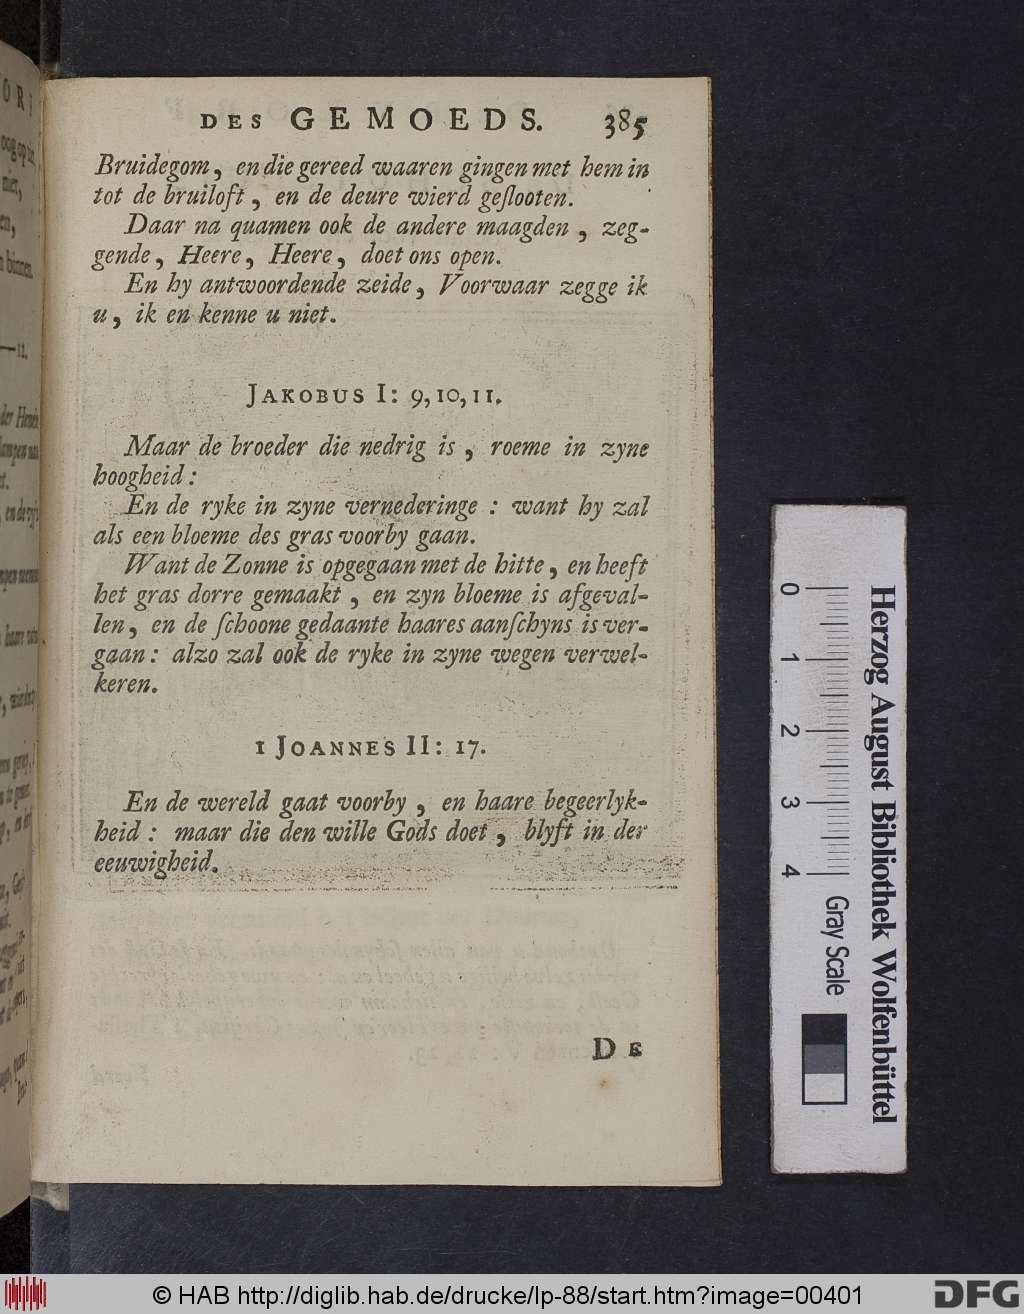 DES GEMOEDS. 385
Bruidegom, en die gereed waaren gingen met hem in
tot de bruiloft, en de deure wierd geſlooten.
Daar na quamen ook de andere maagden, zeg-
gende, Heere, Heere, doet ons open.
En hy antwoordende zeide, Voorwaar zegge ik
u, ik en kenne u niet.
JAKOBUS I: 9, 10, 11.
Maar de broeder die nedrig is, roeme in zyne
hoogheid:
En de ryke in zyne vernederinge: want hy zal
als een bloeme des gras voorby gaan.
Want de Zonne is opgegaan met de hitte, en heeft
het gras dorre gemaakt, en zyn bloeme is afgeval-
len, en de ſchoone gedaante haares aanſchyns is ver-
gaan: alzo zal ook de ryke in zyne wegen verwel-
keren.
1 JOANNES II: 17.
En de wereld gaat voorby, en haare begeerlyk-
heid: maar die den wille Gods doet, blyft in der
eeuwigheid.
DE
0 1 2 3 4 Gray Scale
Herzog August Bibliothek Wolfenbüttel
© HAB http://diglib.hab.de/drucke/lp-88/start.htm?image=00401
DFG